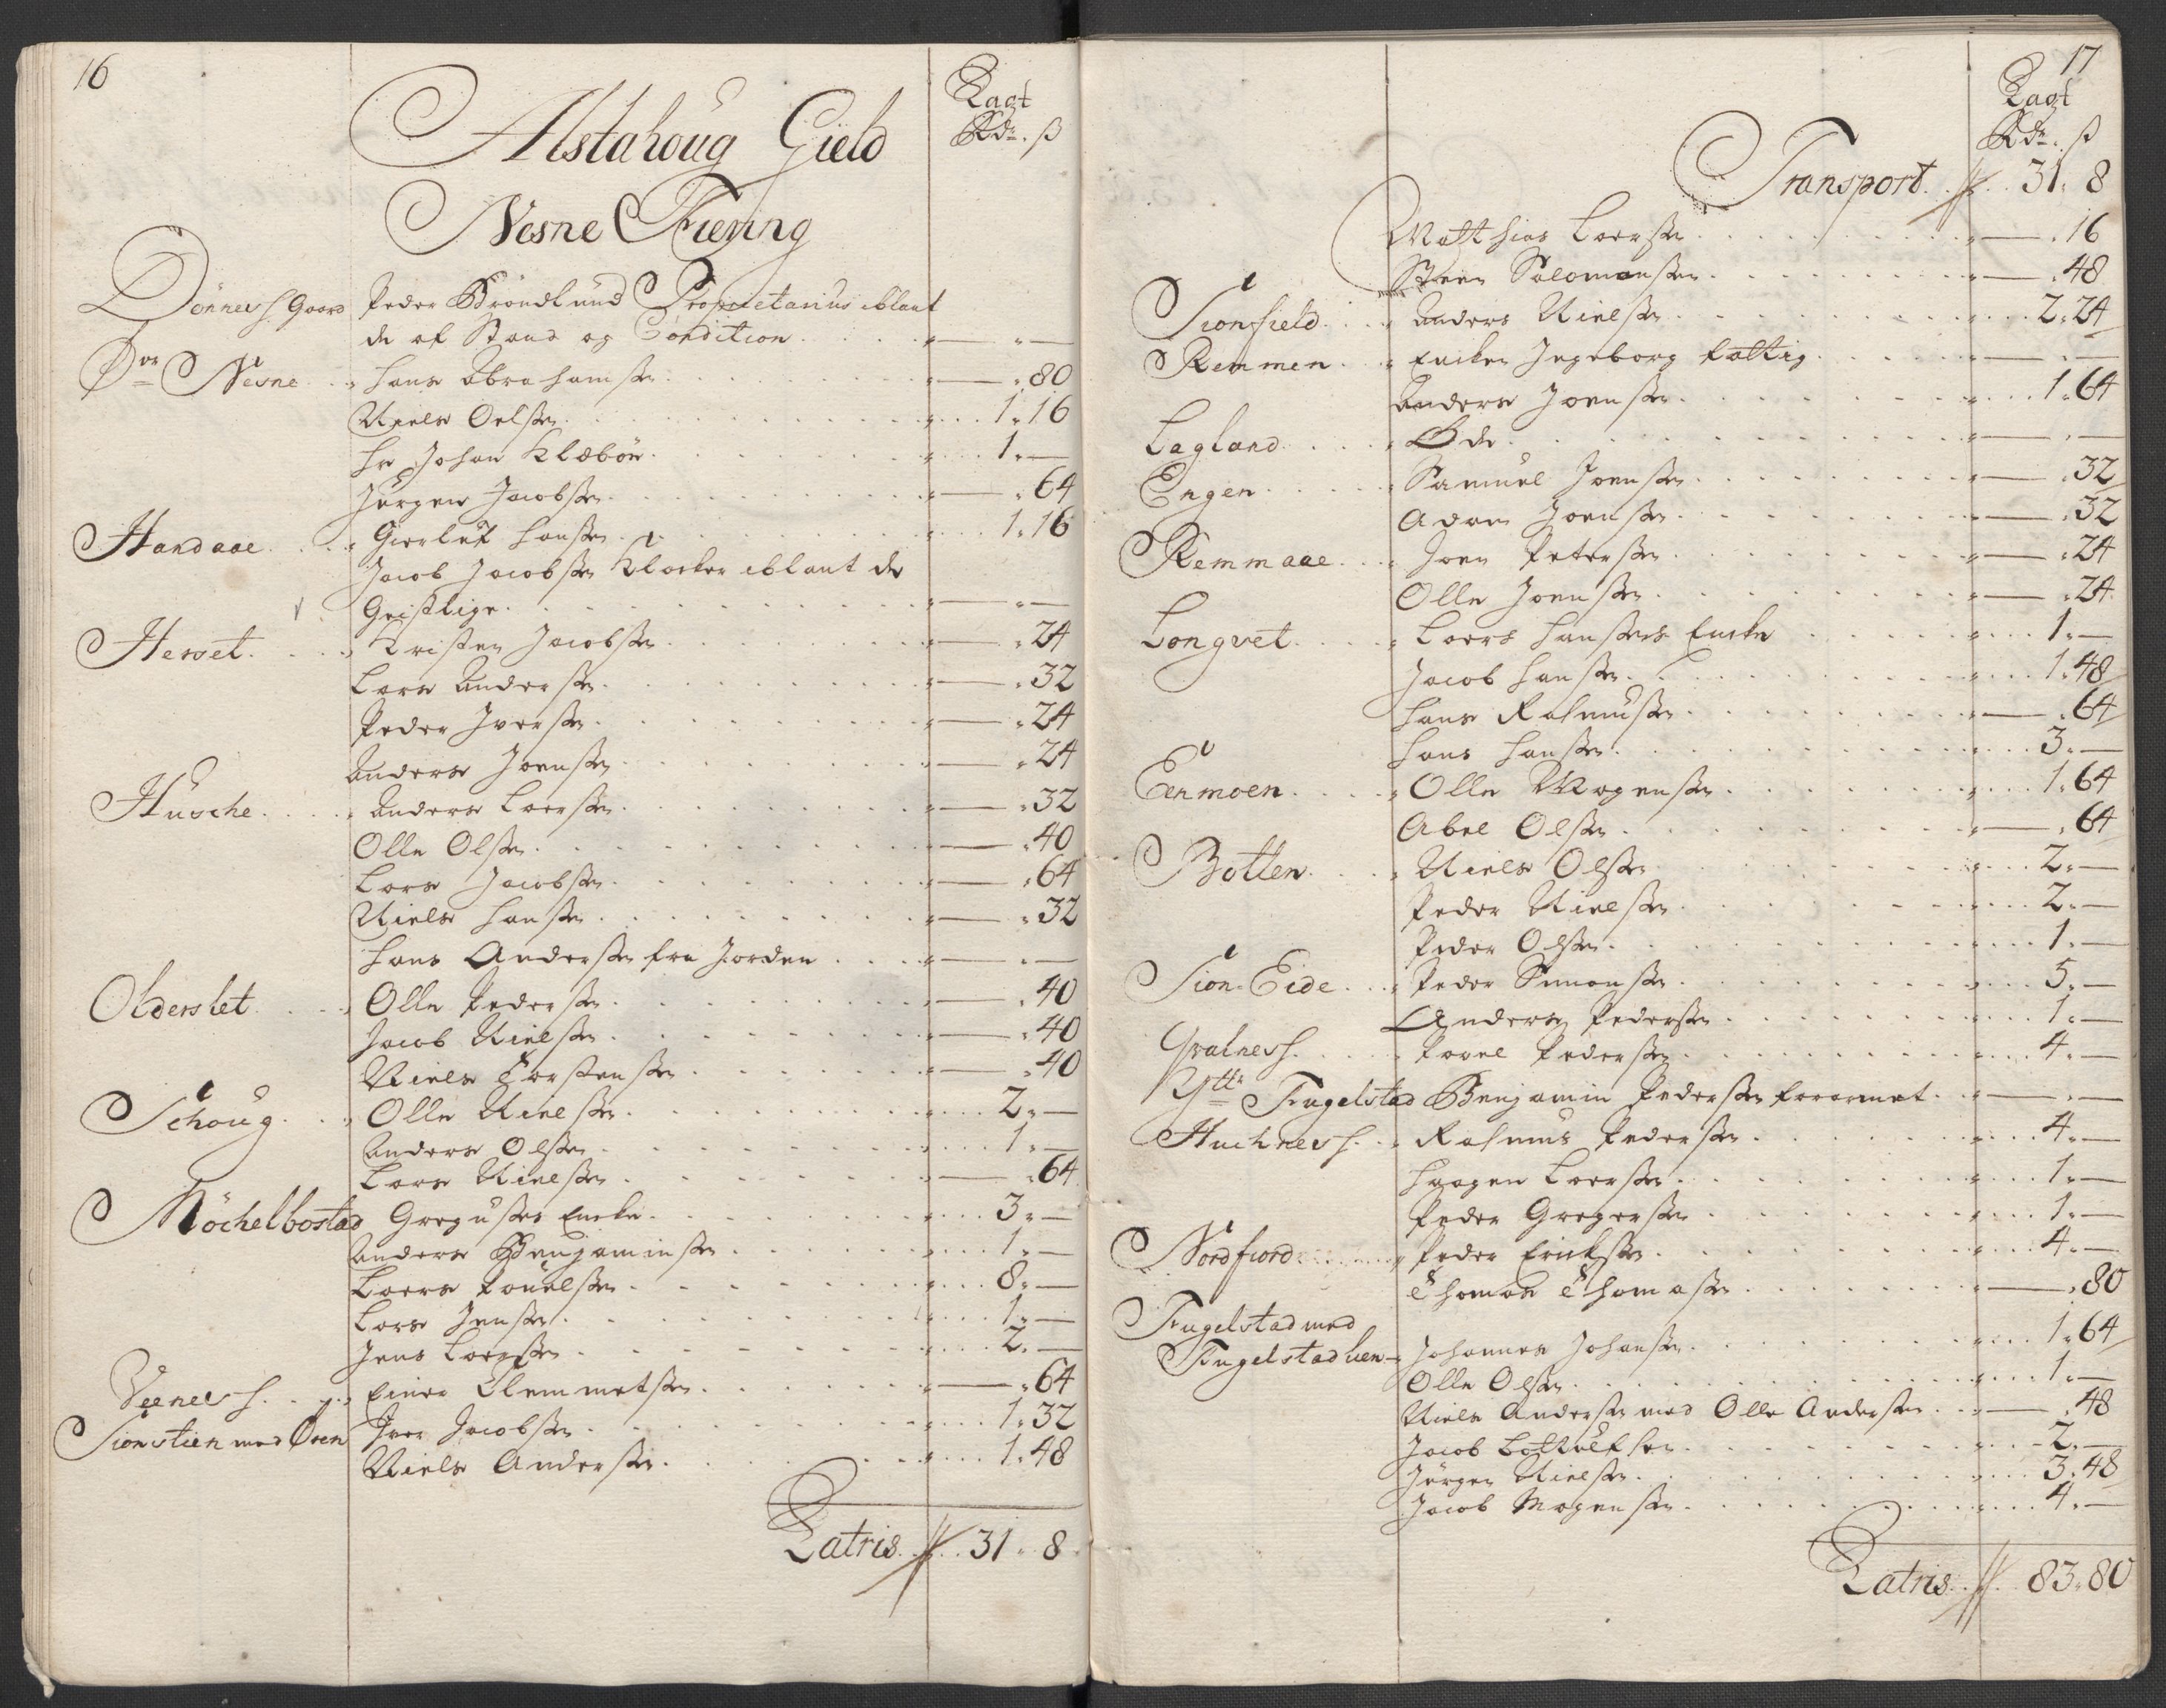 16
Lagt
Rdr. ß
Alstahoug Gield
Nesne Fiering
Dönnes Gaard Peder Bröndlund Proprietarius iblant
de af Stand og Condition . . . " — " —
Nesne . . " Hans Abrahamsen . . . " — " 80
Niels Oelsen . . . 1 " 16
Hr Johan Klæböe . . . 1 " —
Jürgen Jacobsen . . . " — " 64
Handaae . . " Gierluf Hansen . . . 1 " 16
Jacob Jacobsen Klocker iblant de
Geistlige . . . " — " —
Hervet . . " Kristen Jacobsen . . . " — " 24
Lars Andersen . . . " — " 32
Peder Iversen . . . " — " 24
Anders Joensen . . . " — " 24
Husche . . " Anders Larsen . . . " — " 32
Olle Olsen . . . " — " 40
Lars Jacobsen . . . " — " 64
Niels Hansen . . . " — " 32
Hans Andersen fra Jorden . . . " — " —
Olderslet . . " Olle Pedersen . . . " — " 40
Jacob Nielsen . . . " — " 40
Niels Torstensen . . . " — " 40
Schoug . . " Olle Nielsen . . . 2 " —
Anders Olsen . . . 1 " —
Lars Nielsen . . . " — " 64
Möchelbostad Gregusses Encke . . . 3 " —
Anders Benjaminsen . . . 1 " —
Laers Pouelsen . . . 8 " —
Lars Jensen . . . 1 " —
Jens Laersen . . . 2 " —
Veenes . . " Einer Clemmetsen . . . " — " 64
Sionstien med Øren Iver Jacobsen . . . 1 " 32
Niels Andersen . . . 1 " 48
Latris . . 31 " 8
17
Lagt
Rdr. ß
Transport . . 31 " 8
Matthias Laersen . . . " — " 16
Steen Salomonsen . . . " — " 48
Sionfield . . " Anders Nielsen . . . 2 " 24
Remmen . . " Encken Ingeborg fattig . . . " — " —
Anders Joensen . . . 1 " 64
Lagland . . " Øde . . . " — " —
Engen . . " Samuel Joensen . . . " — " 32
Adam Joensen . . . " — " 32
Remmaae . . " Joen Petersen . . . " — " 24
Olle Joensen . . . " — " 24
Langvet . . " Laers Hansens Encke . . . 1 " —
Jacob Hansen . . . 1 " 48
Hans Rasmussen . . . " — " 64
Hans Hansen . . . 3 " —
Eenmoen . . " Olle Mogensen . . . 1 " 64
Abel Olsen . . . " — " 64
Botten . . " Niels Olsen . . . 2 " —
Peder Nielsen . . . 2 " —
Peder Olsen . . . 1 " —
Sion-Eide . . " Peder Simonsen . . . 5 " —
Anders Pedersen . . . 1 " —
Qvalnes . . " Povel Pedersen . . . 4 " —
Ytt Fugelstad Benjamin Pedersen forarmet . . . " — " —
Huchnes . . " Rasmus Pedersen . . . 4 " —
Haagen Laersen . . . 1 " —
Peder Gregersen . . . 1 " —
Nordfiord . . " Peder Ericksen . . . 4 " —
Thomas Thomasen . . . " — " 80
Fugelstad med
Fugelstadlien " Johannes Johansen . . . 1 " 64
Olle Olsen . . . 1 " —
Niels Andersen med Olle Andersen . . . " — " 48
Jacob . . . 2 " —
Jörgen Nielsen . . . 3 " 48
Jacob Mogensen . . . 4 " —
Latris . . 83 " 80